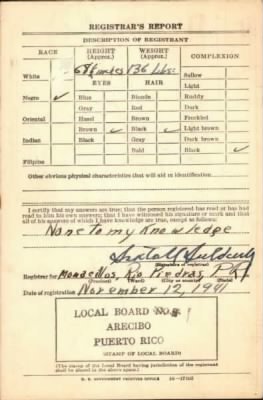 REGISTRAR'S REPORT
DESCRIPTION OF REGISTRANT
RACE HEIGHT (Approx.) WEIGHT (Approx.) COMPLEXION
136 lbs.
White Sallow
EYES HAIR Light
Negro ✓ Blue Blonde Ruddy
Gray Red Dark
Oriental Hazel Brown Freckled
Brown ✓ Black ✓ Light brown
Indian Black Gray Dark brown
Bald Black ✓
Filipino
Other obvious physical characteristics that will aid in identification
I certify that my answers are true; that the person registered has read or has had
read to him his own answers; that I have witnessed his signature or mark and that
all of his answers of which I have knowledge are true, except as follows:
None to my Knowledge
(Signature of registrar)
Registrar for Rio Piedras, P.R.
(Precinct) (Ward) (City or county) (State)
Date of registration November 12, 1941
LOCAL BOARD NO.
ARECIBO
PUERTO RICO
(STAMP OF LOCAL BOARD)
(The stamp of the Local Board having jurisdiction of the registrant
shall be placed in the above space.)
U. S. GOVERNMENT PRINTING OFFICE